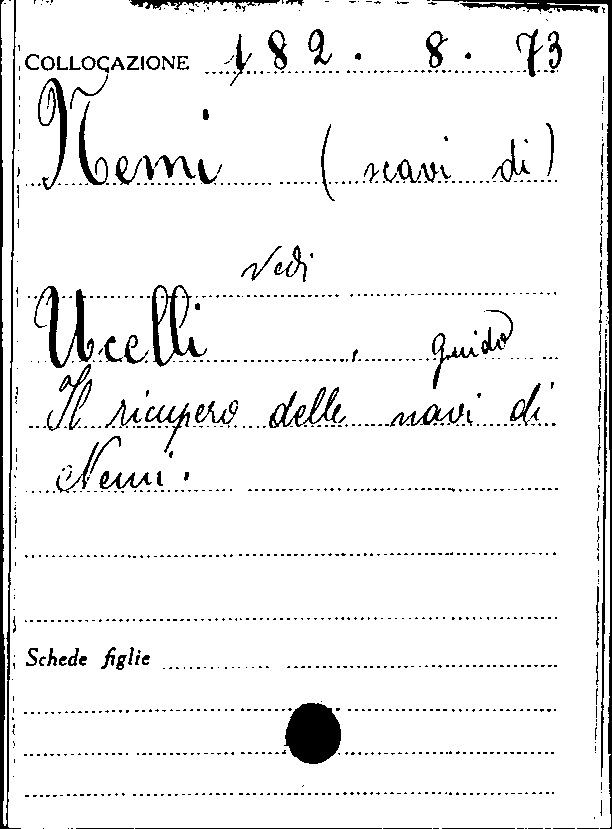 COLLOCAZIONE 182 . 8 . 73
Nemi (scavi di)
Vedi
Ucelli , Guido
Il ricupero delle navi di
Nemi.
Schede figlie